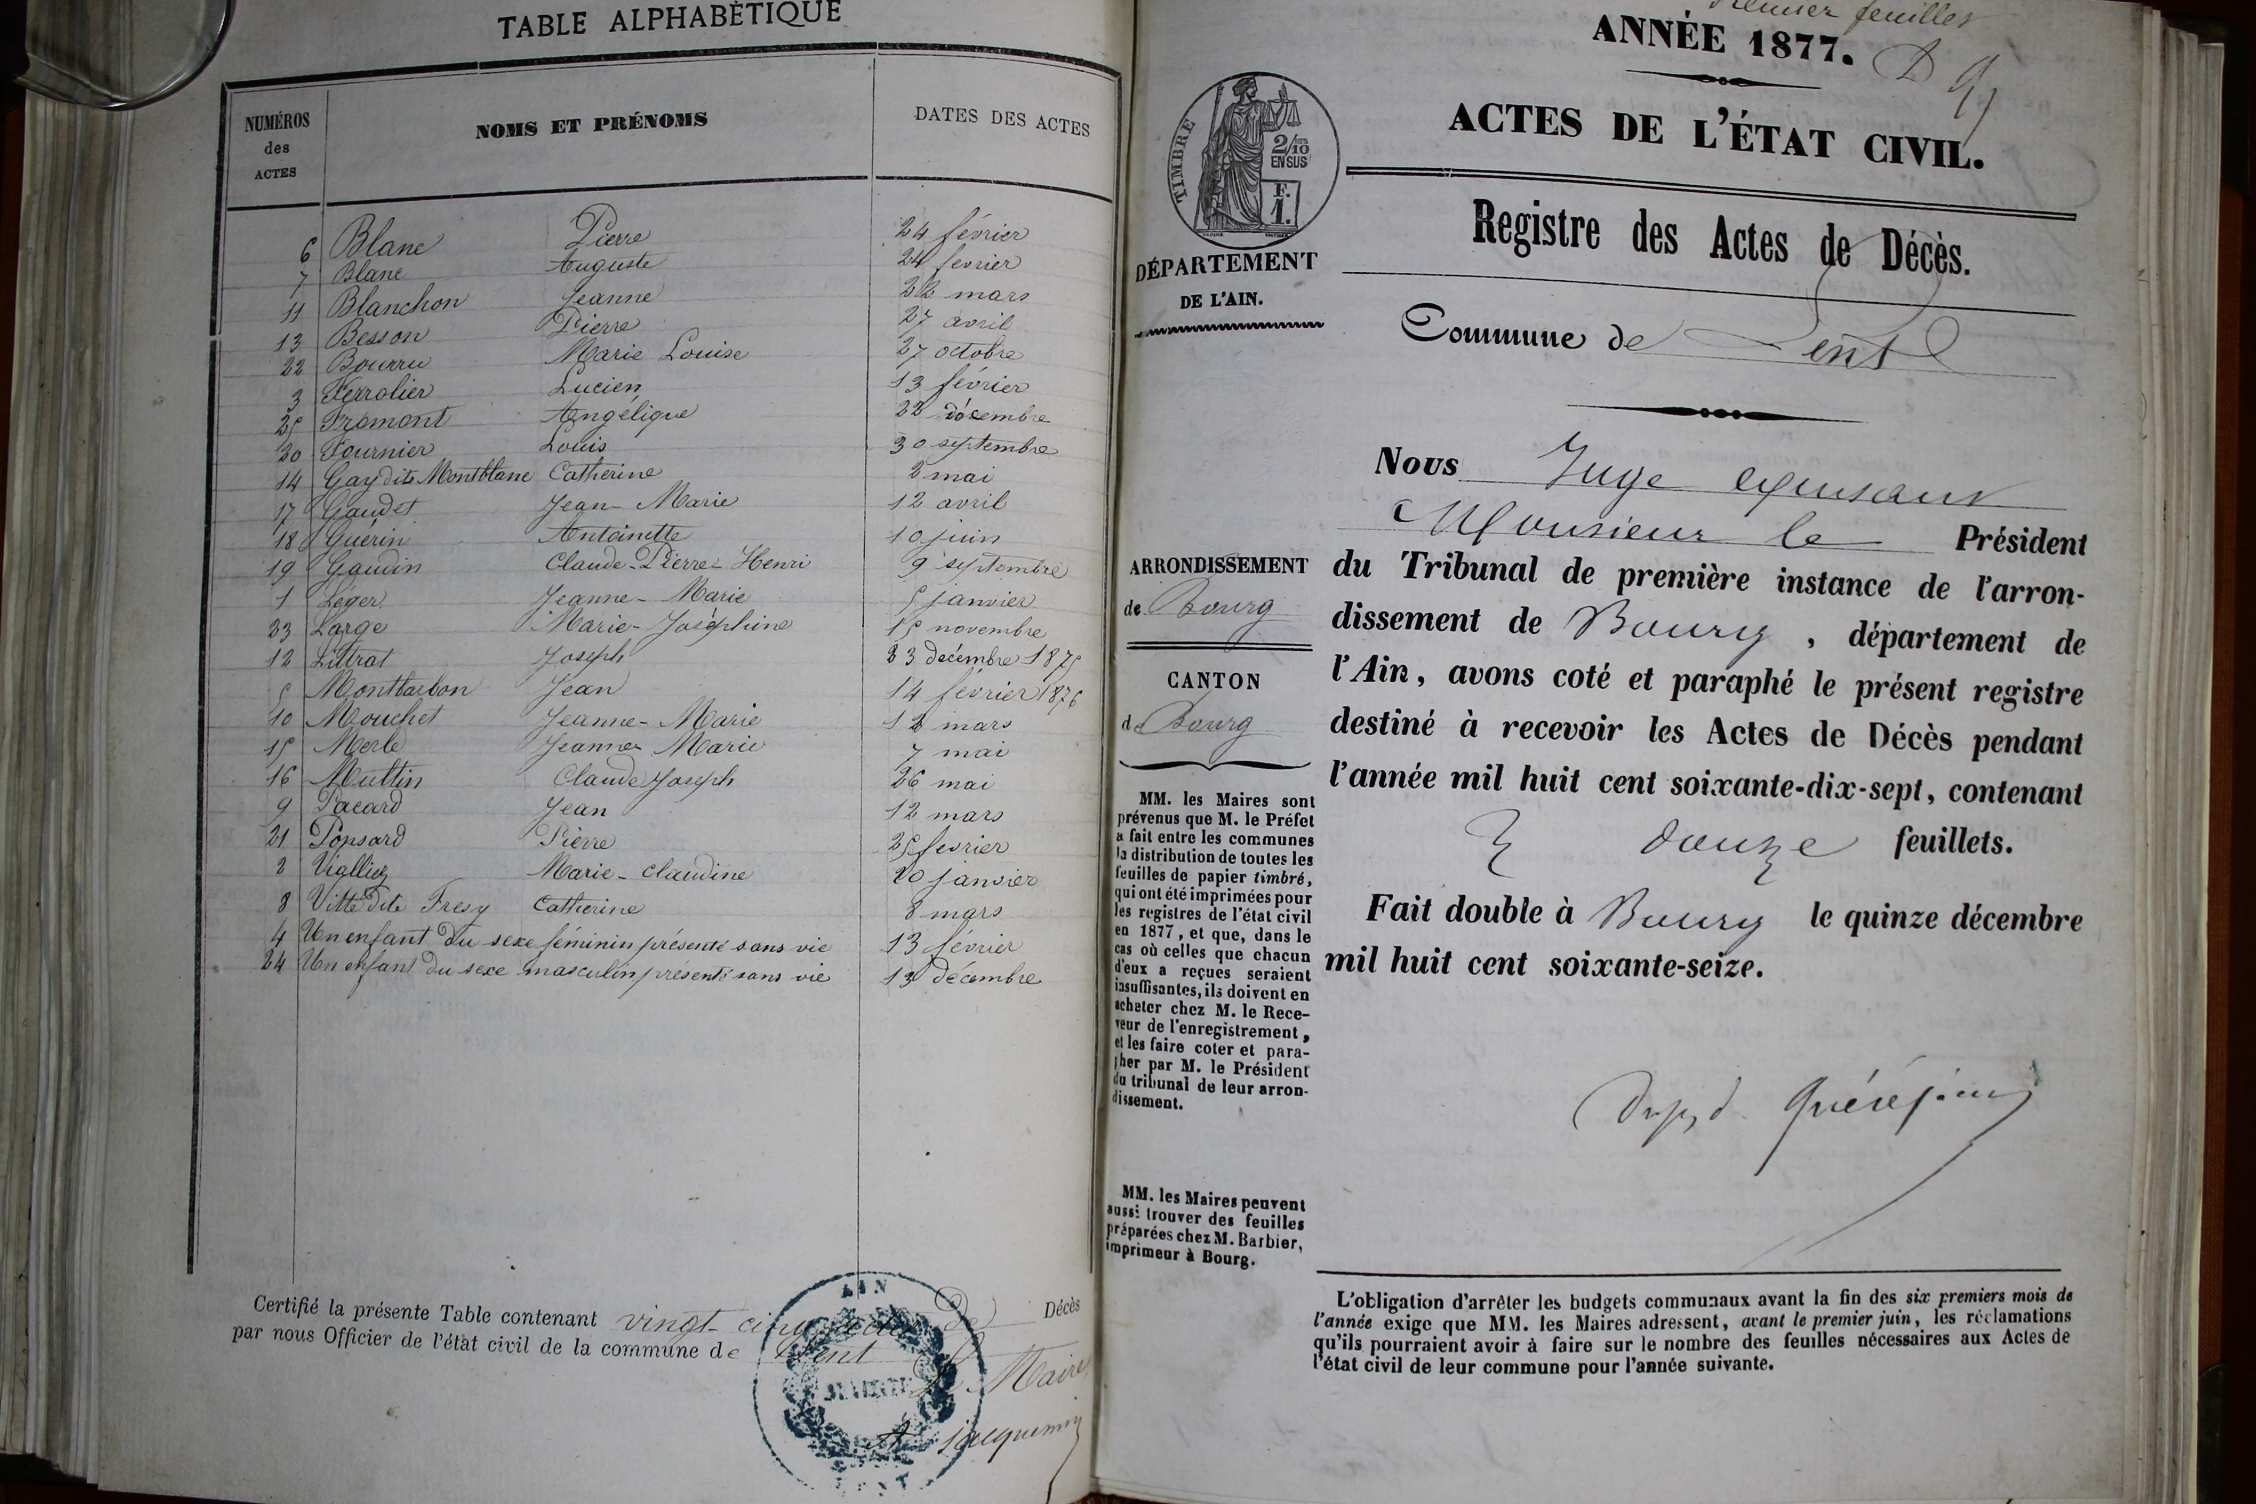 TABLE ALPHABÉTIQUE
NUMÉROS
des
ACTES
NOMS ET PRÉNOMS
DATES DES ACTES
6 Blanc Pierre 24 février
7 Blanc Auguste 24 fevrier
11 Blanchon Jeanne 22 mars
13 Besson Pierre 27 avril
22 Bourru Marie Louise 27 octobre
3 Ferrolier Lucien 13 février
25 Fromont Angélique 22 décembre
20 Fournier Louis 30 septembre
14 Gay dite Montblanc Catherine 2 mai
17 Gaudet Jean-Marie 12 avril
18 Guérin Antoinette 10 juin
19 Gaudin Claude-Pierre-Henri 9 septembre
1 Leger Jeanne-Marie 5 janvier
23 Large Marie-Joséphine 15 novembre
12 Littrat Joseph 23 decémbre 1875
5 Montbarbon Jean 14 février 1876
10 Mouchet Jeanne-Marie 12 mars
15 Merle Jeanne Marie 7 mai
16 Muttin Claude Joseph 26 mai
9 Pacard Jean 12 mars
21 Ponsard Pierre 25 fevrier
2 Vialliez Marie-claudine 20 janvier
8 Vitte dite Fresy Catherine 8 mars
4 Un enfant du sexe féminin présenté sans vie 13 février
24 Un enfant du sexe masculin présenté sans vie 13 décembre
Certifié la présente Table contenant vingt-cinq actes de Décès
par nous Officier de l'état civil de la commune de Lent
Le Maire
A. Jacquemin
AIN
MAIRIE
LENT
Premier feuillet
ANNÉE 1877.
ACTES DE L'ÉTAT CIVIL.
TIMBRE
2/10
EN SUS
F.
1.
Registre des Actes de Décès.
DÉPARTEMENT
DE L'AIN.
Commune de Lent
Nous Juge
Monsieur le Président
du Tribunal de première instance de l'arron-
dissement de Bourg, département de
l'Ain, avons coté et paraphé le présent registre
destiné à recevoir les Actes de Décès pendant
l'année mil huit cent soixante-dix-sept, contenant
douze feuillets.
Fait double à Bourg le quinze décembre
mil huit cent soixante-seize.
ARRONDISSEMENT
de Bourg
CANTON
d Bourg
MM. les Maires sont
prévenus que M. le Préfet
a fait entre les communes
la distribution de toutes les
feuilles de papier timbré,
qui ont été imprimées pour
les registres de l'état civil
en 1877, et que, dans le
cas où celles que chacun
d'eux a reçues seraient
insuffisantes, ils doivent en
acheter chez M. le Rece-
veur de l'enregistrement,
et les faire coter et para-
pher par M. le Président
du tribunal de leur arron-
dissement.
MM. les Maires peuvent
aussi trouver des feuilles
préparées chez M. Barbier,
imprimeur à Bourg.
L'obligation d'arrêter les budgets communaux avant la fin des six premiers mois de
l'année exige que MM. les Maires adressent, avant le premier juin, les réclamations
qu'ils pourraient avoir à faire sur le nombre des feuilles nécessaires aux Actes de
l'état civil de leur commune pour l'année suivante.